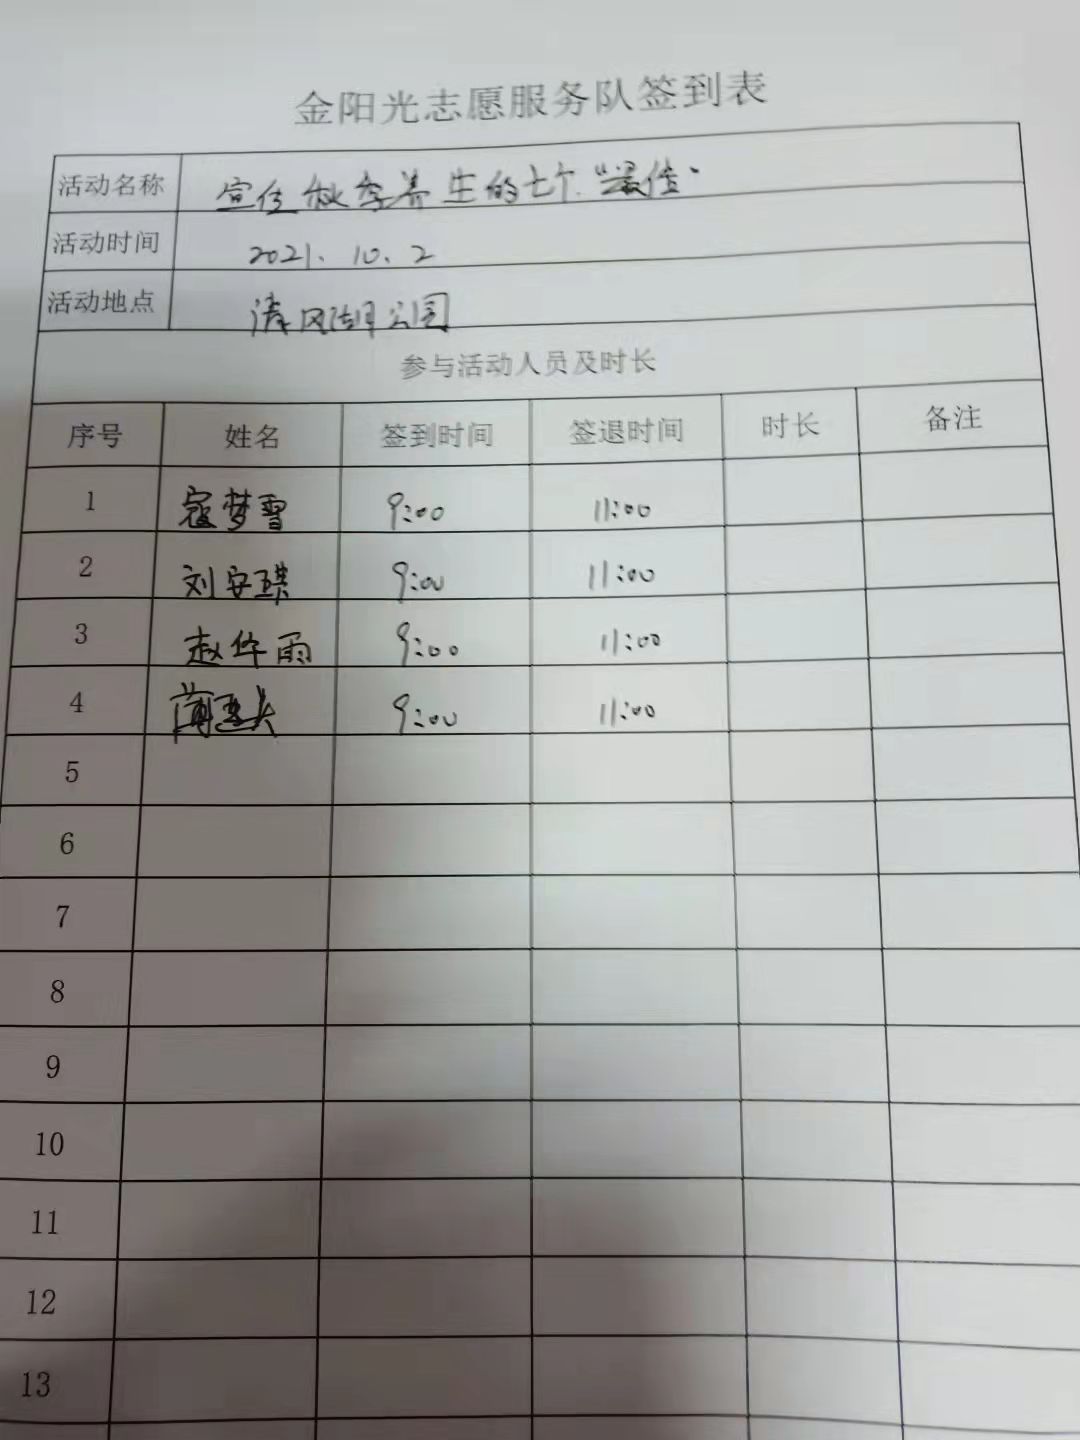 金阳光志愿服务队签到表
活动名称 宣传秋季养生的七个“最佳”
活动时间 2021.10.2
活动地点 清风湖公园
参与活动人员及时长
序号 姓名 签到时间 签退时间 时长 备注
1 寇梦雪 9:00 11:00
2 刘安琪 9:00 11:00
3 赵仵雨 9:00 11:00
4 9:00 11:00
5
6
7
8
9
10
11
12
13